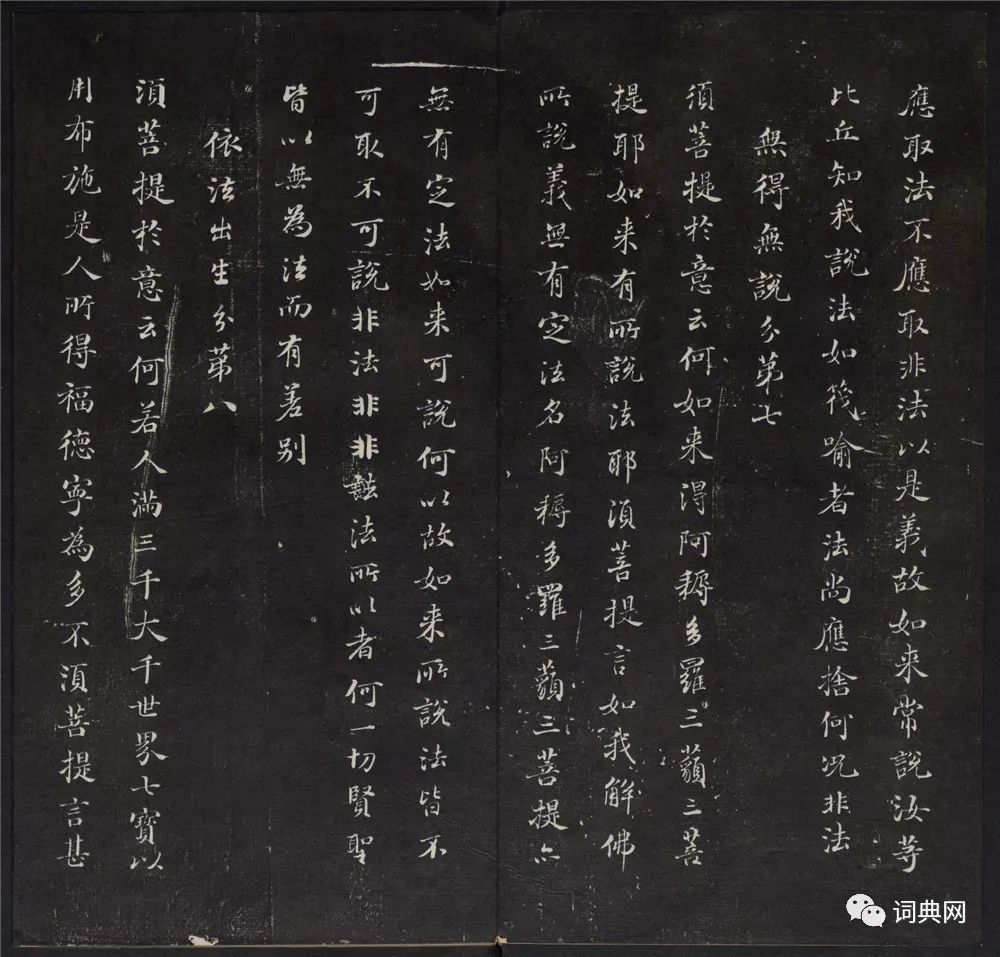 應取法不應取非法以是義故如来常說汝等
比丘知我說法如筏喻者法尚應捨何况非法
無得無說分第七
須菩提於意云何如来得阿耨多羅三藐三菩
提耶如来有所說法耶須菩提言如我解佛
所說義無有定法名阿耨多羅三藐三菩提亦
無有定法如来可說何以故如来所說法皆不
可取不可說非法非非法所以者何一切賢聖
皆以無為法而有差别
依法出生分第八
須菩提於意云何若人滿三千大千世界七寶以
用布施是人所得福德寧為多不須菩提言甚
词典网